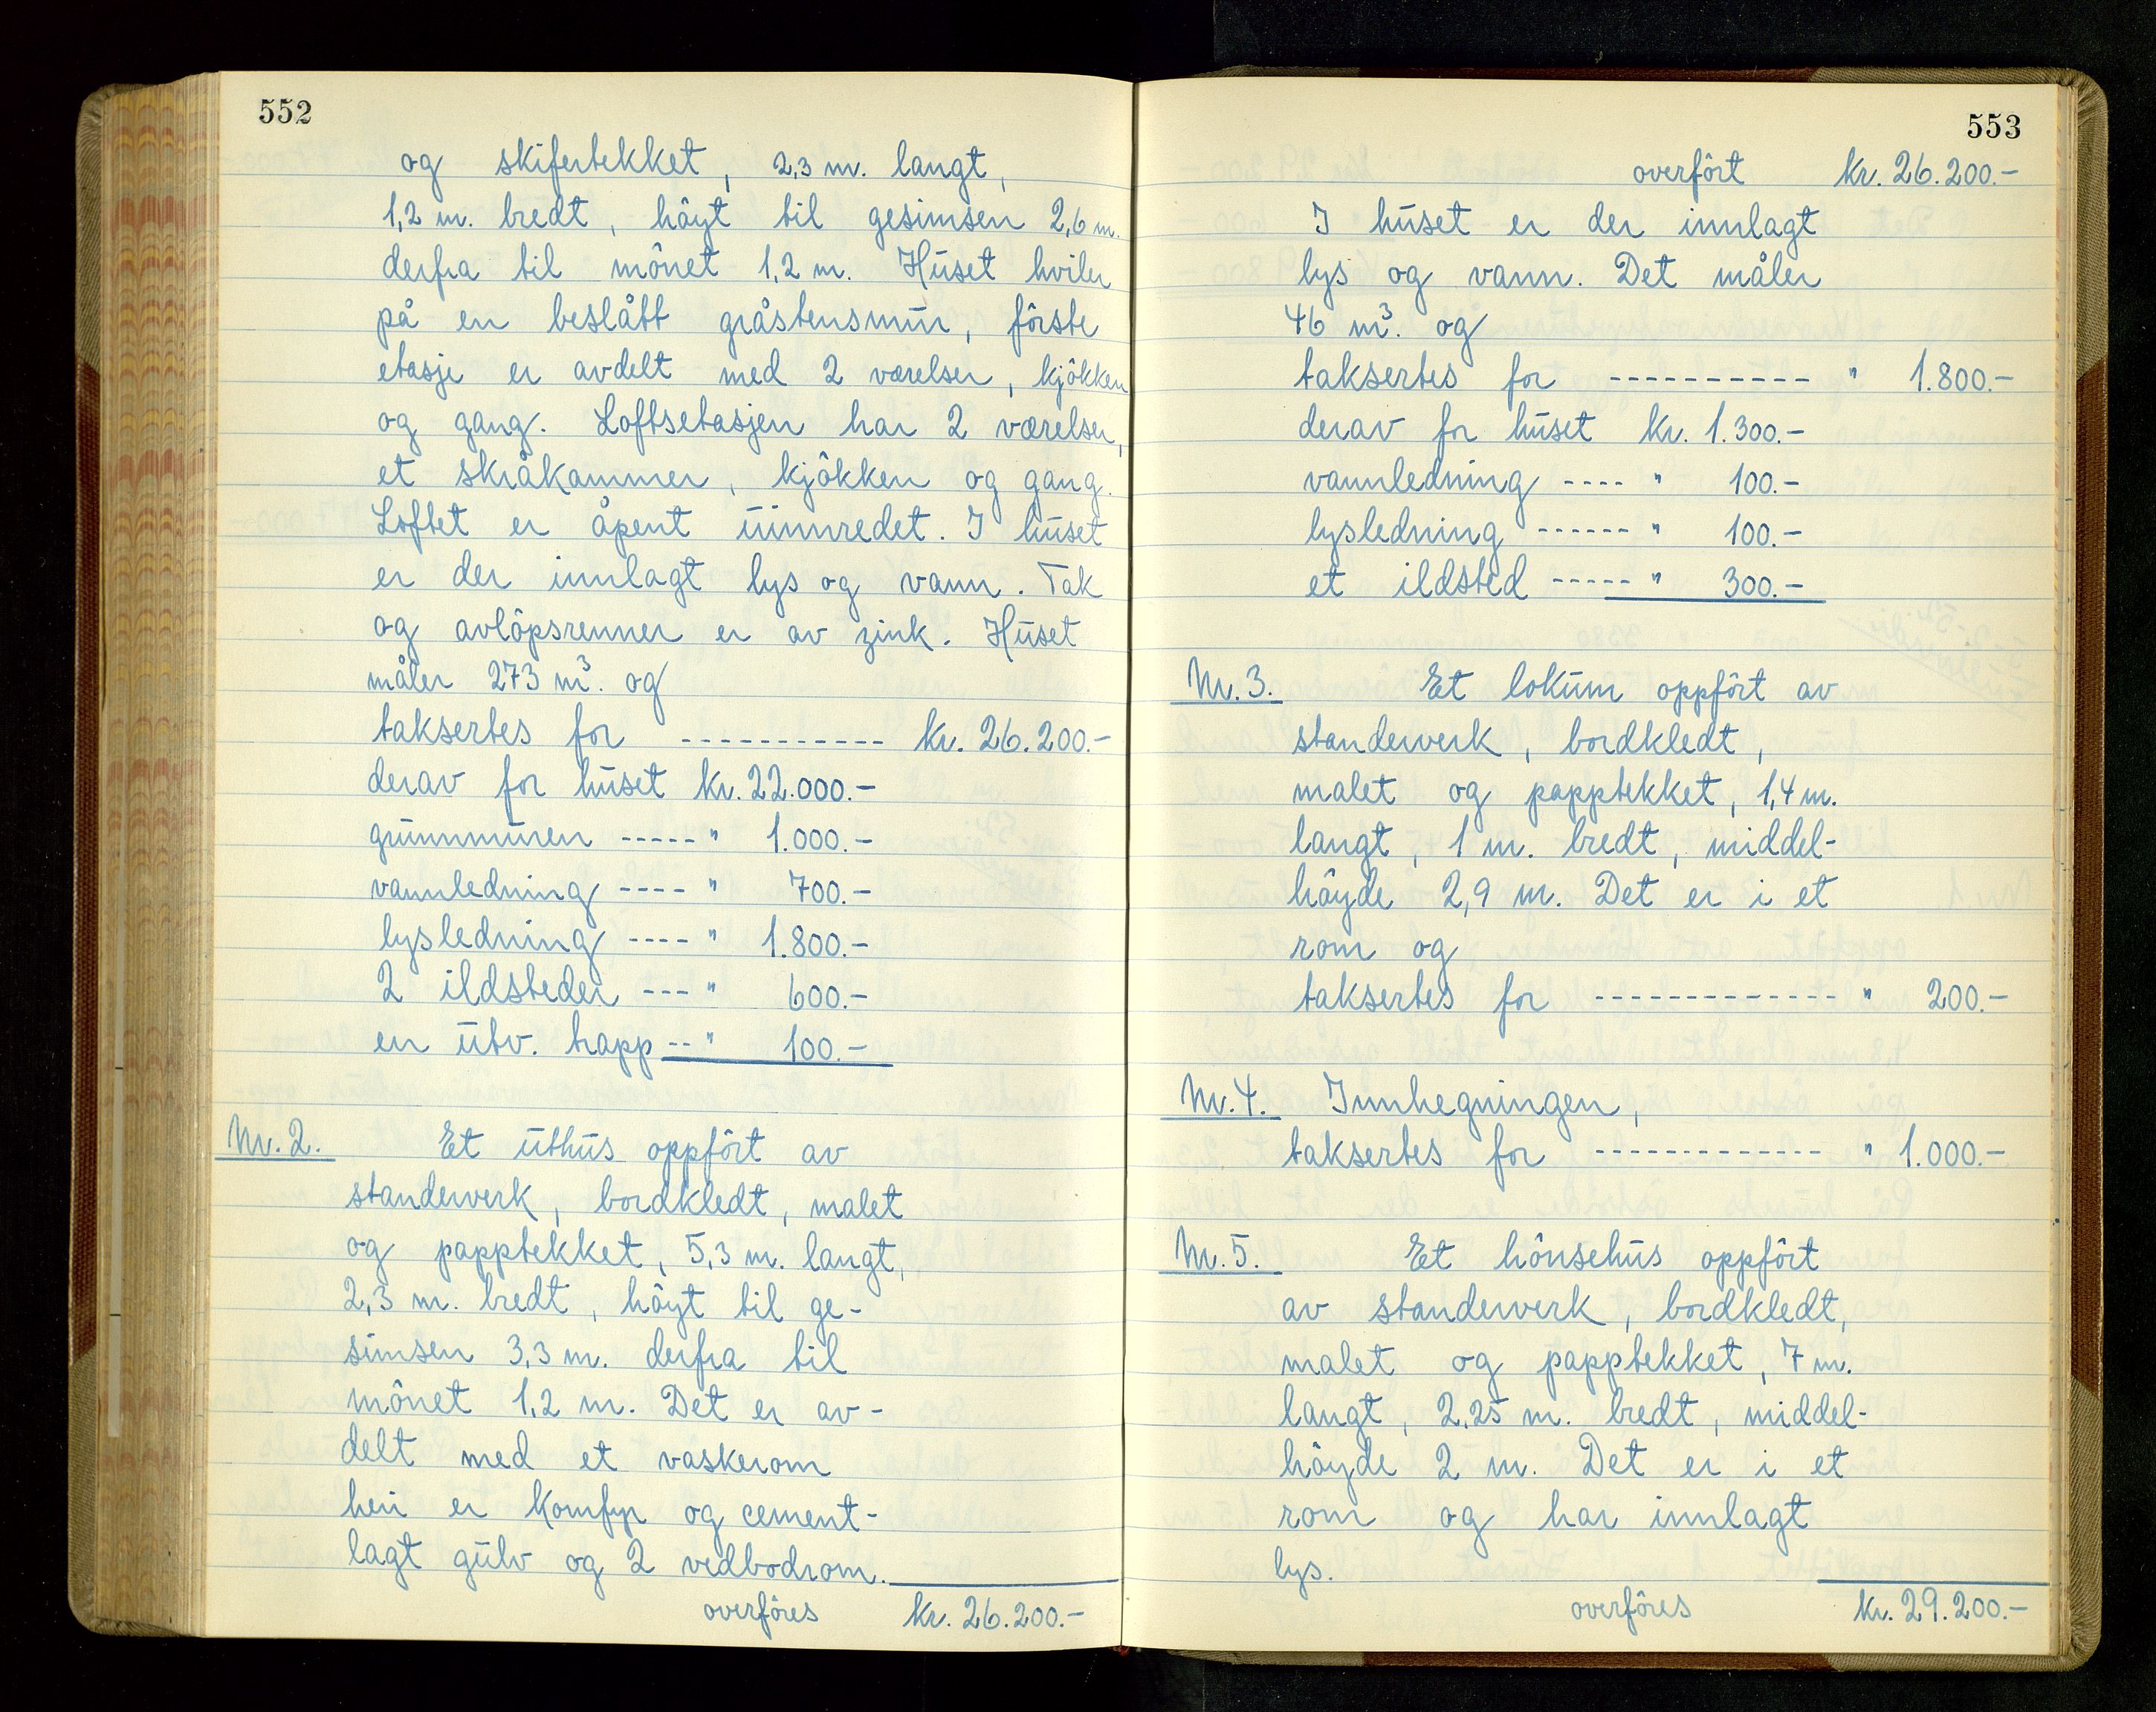 552
og skifertekket, 2,3 m. langt,
1,2 m. bredt, höyt til gesimsen 2,6 m.
derfra til mönet 1,2 m. Huset hviler
på en beslått gråstensmur, förste
etasje er avdelt med 2 værelser, kjökken
og gang. Loftsetasjen har 2 værelser,
et skråkammer, kjökken og gang.
Loftet er åpent uinnredet. I huset
er der innlagt lys og vann. Tak
og avlöpsrenner er av zink. Huset
måler 273 m³. og
taksertes for ----------- kr. 26.200.-
derav for huset kr. 22.000.-
grunnmuren ----- " 1.000.-
vannledning ---- " 700.-
lysledning ---- " 1.800.-
2 ildsteder --- " 600.-
en utv. trapp -- " 100.-
Nr. 2. Et uthus oppfört av
standerverk, bordkledt, malet
og papptekket, 5,3 m. langt,
2,3 m. bredt, höyt til ge-
simsen 3,3 m. derfra til
mönet 1,2 m. Det er av-
delt med et vaskerom
heri er komfyr og cement-
lagt gulv og 2 vedbodrom.
overföres kr. 26.200.-
553
overfört kr. 26.200.-
I huset er der innlagt
lys og vann. Det måler
46 m³. og
taksertes for ---------- " 1.800.-
derav for huset kr. 1.300.-
vannledning ---- " 100.-
lysledning ------ " 100.-
et ildsted ----- " 300.-
Nr. 3. Et lokum oppfört av
standerverk, bordkledt,
malet og papptekket, 1,4 m.
langt, 1 m. bredt, middel-
höyde 2,9 m. Det er i et
rom og
taksertes for ------------- " 200.-
Nr. 4. Innhegningen,
taksertes for ------------- " 1.000.-
Nr. 5. Et hönsehus oppfört
av standerverk, bordkledt,
malet og papptekket, 7 m.
langt, 2,25 m. bredt, middel-
höyde 2 m. Det er i et
rom og har innlagt
lys.
overföres kr. 29.200.-